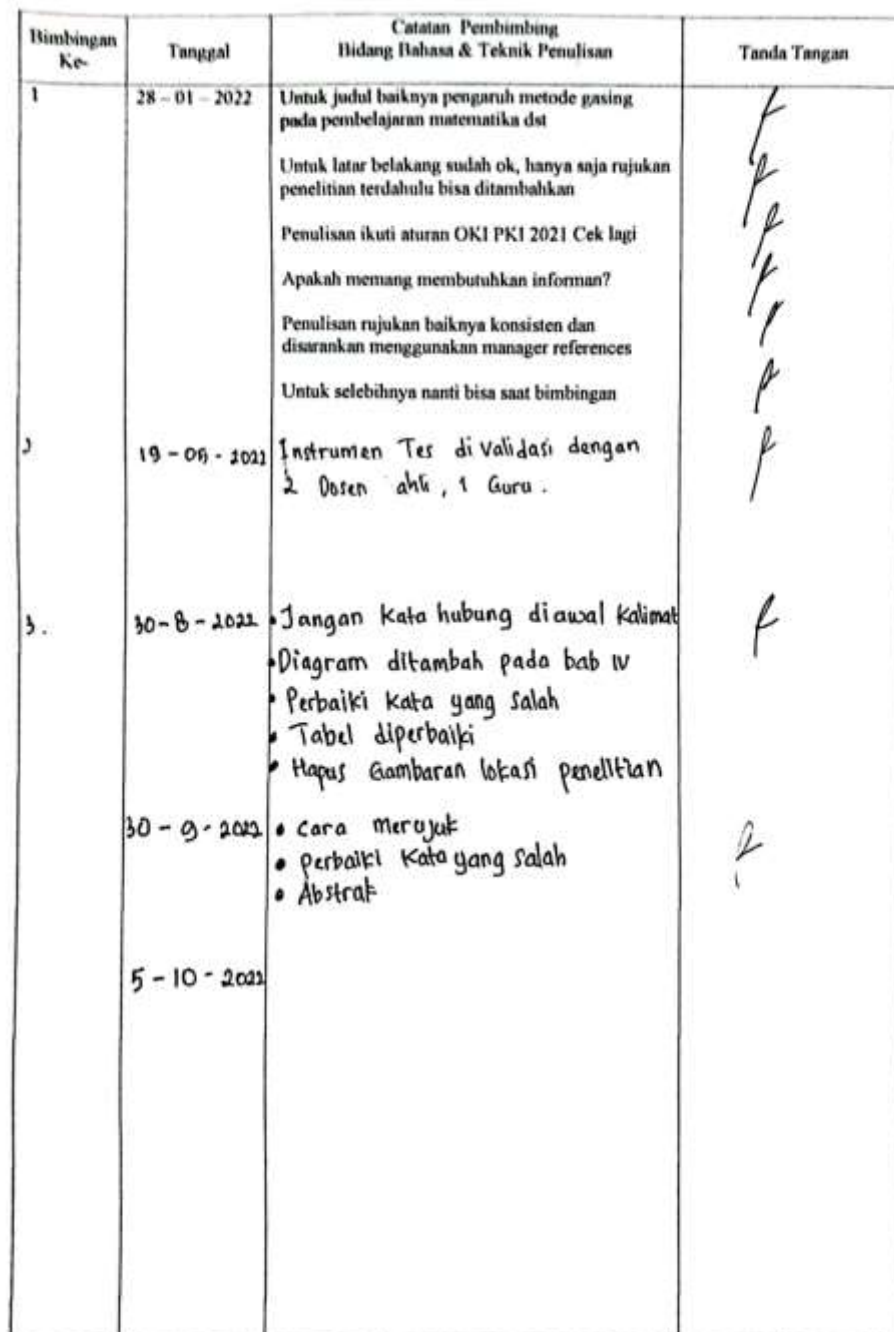 Bimbingan Ke-
Tanggal
Catatan Pembimbing
Bidang Bahasa & Teknik Penulisan
Tanda Tangan
1
28 – 01 – 2022
Untuk judul baiknya pengaruh metode gasing
pada pembelajaran matematika dst
Untuk latar belakang sudah ok, hanya saja rujukan
penelitian terdahulu bisa ditambahkan
Penulisan ikuti aturan OKI PKI 2021 Cek lagi
Apakah memang membutuhkan informan?
Penulisan rujukan baiknya konsisten dan
disarankan menggunakan manager references
Untuk selebihnya nanti bisa saat bimbingan
Instrumen Tes di Validasi dengan
2 Dosen ahli, 1 Guru.
3.
30-8-2022
• Jangan Kata hubung diawal Kalimat
• Diagram ditambah pada bab IV
• Perbaiki Kata yang Salah
• Tabel diperbaiki
• Hapus Gambaran lokasi penelitian
30 - 9 - 2022
• Cara Merujuk
• Perbaiki Kata yang Salah
• Abstrak
5 - 10 - 2022